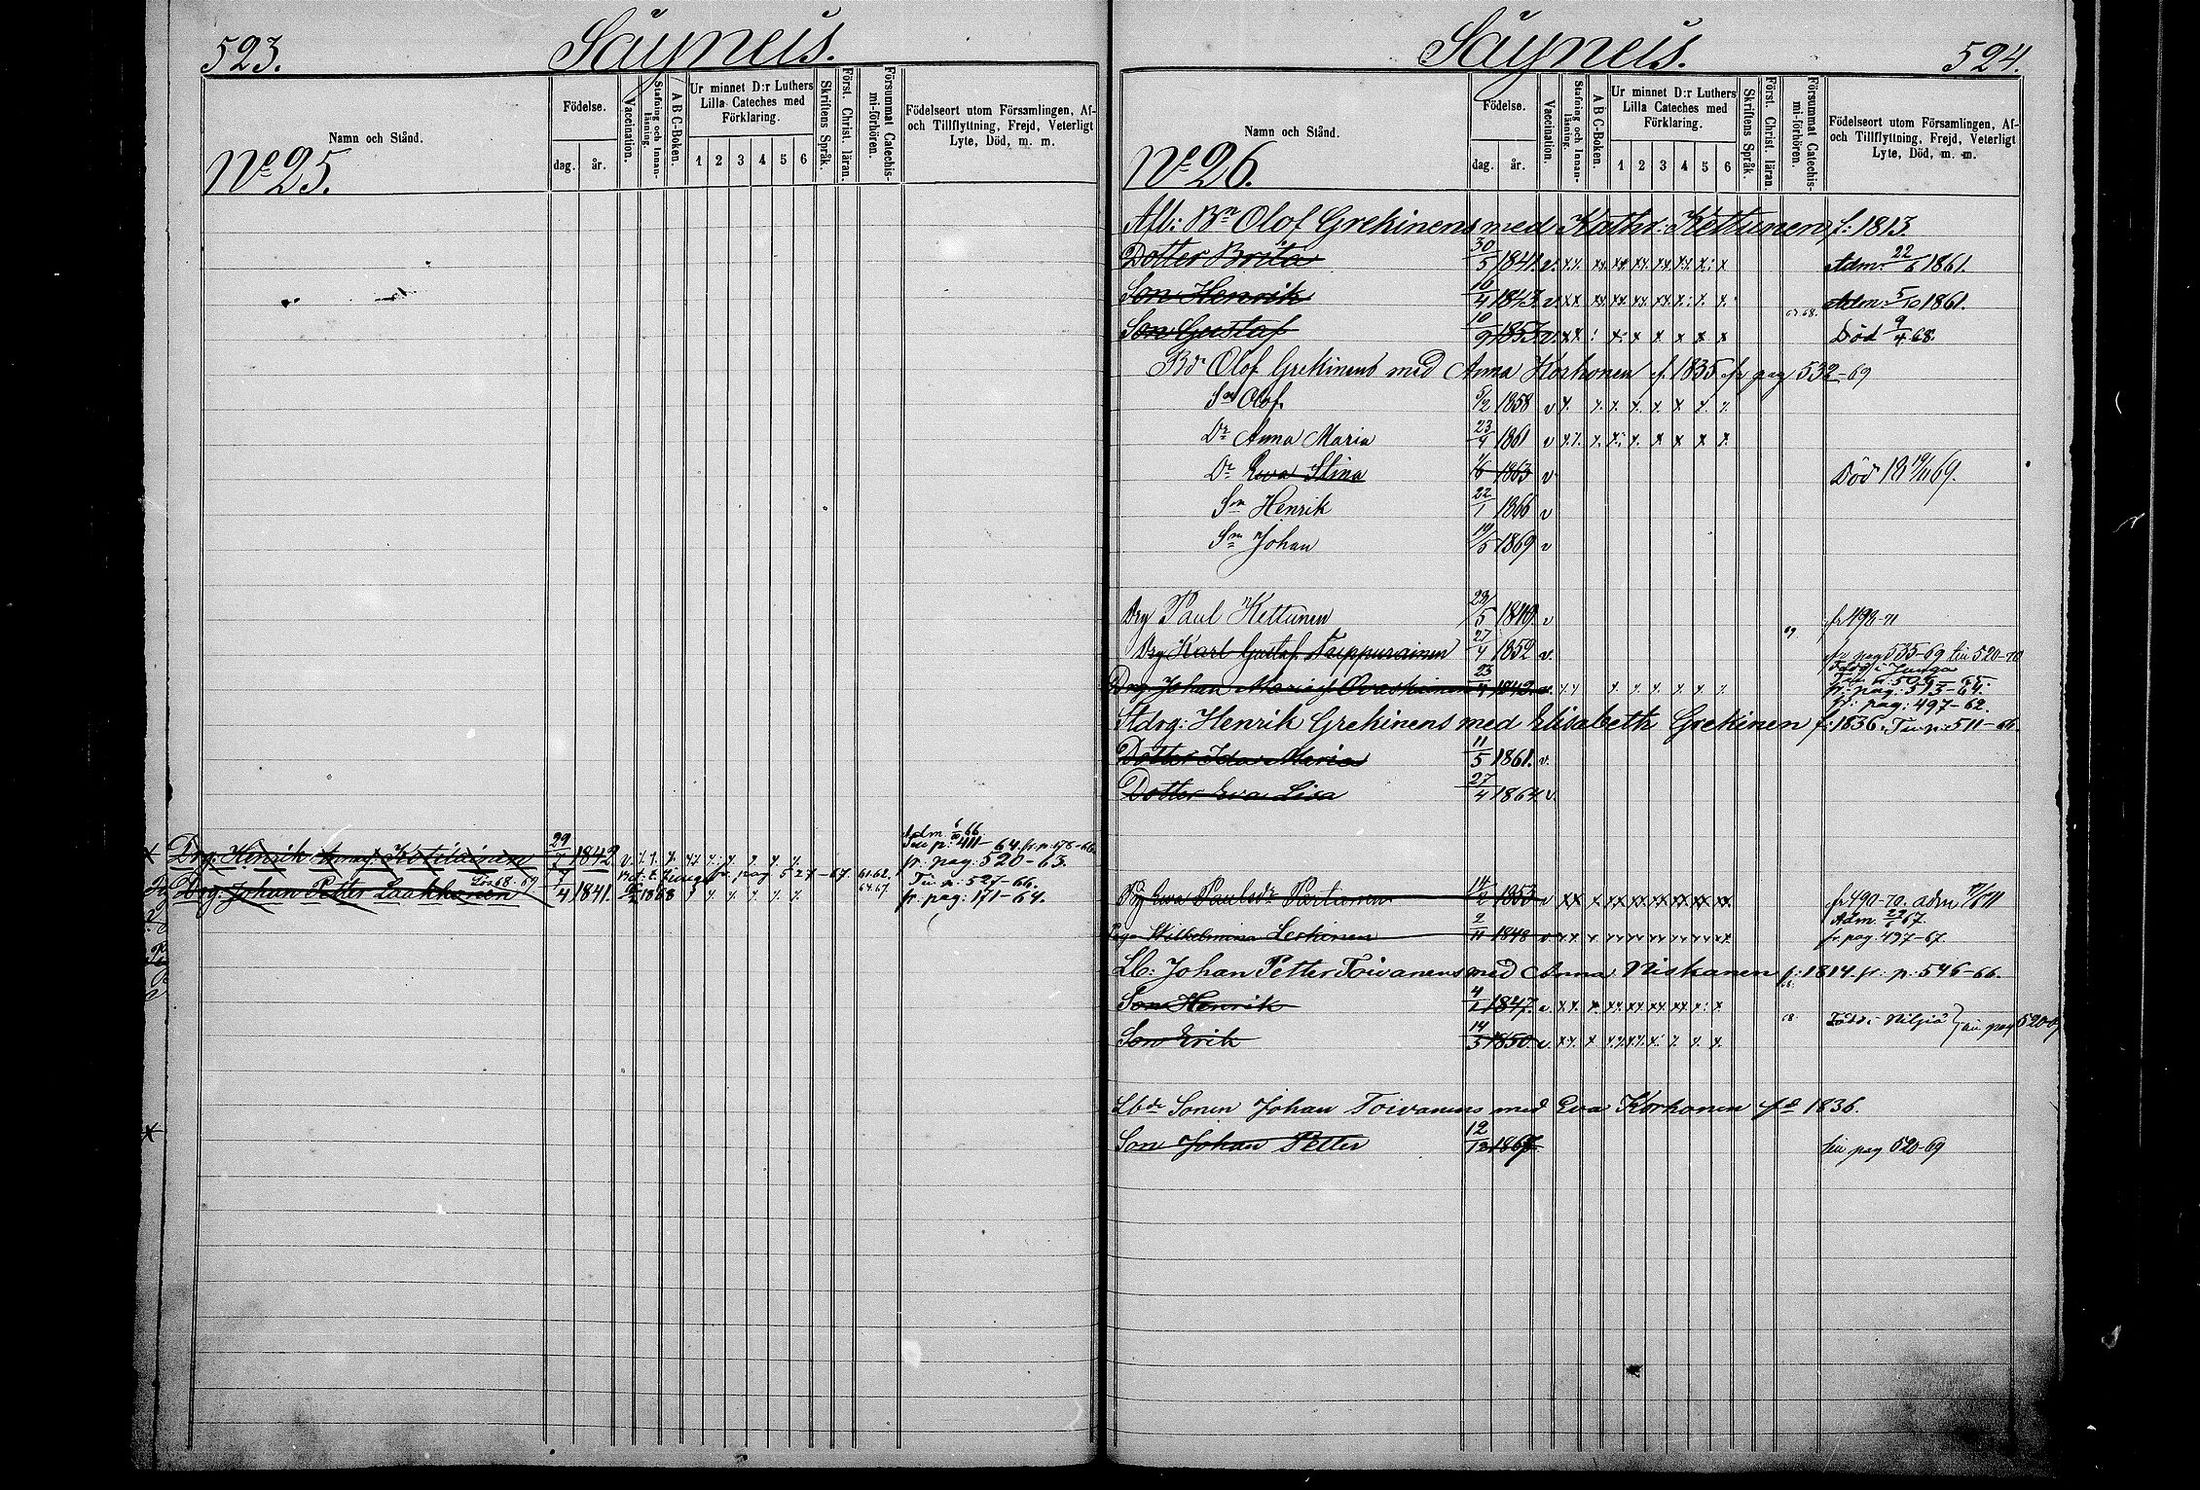 523.
Säyneis.
Namn och Stånd.
Födelse.
dag.
år.
Vaccination.
Stafning och Innanläsning.
A B C-Boken.
Ur minnet D:r Luthers
Lilla Cateches med
Förklaring.
1 2 3 4 5 6
Skriftens Språk.
Först. Christ. läran.
Försummat Catechis-
mi-förhören.
Födelseort utom Församlingen, Af-
och Tillflyttning, Frejd, Veterligt
Lyte, Död, m. m.
No 25.
Adm. 66
Drg: Henrik Kotilainen 29/7 1842 v.
fr: pag: 520-63.
Bet. t. fr pag 527-67. 61.62.
Drg: Johan Petter Laakkonen 7/4 1841.
64.67.
Tii p: 527-66.
fr: pag: 171-64.
Säyneis.
524.
Namn och Stånd.
Födelse.
dag.
år.
Vaccination.
Stafning och Innanläsning.
A B C-Boken.
Ur minnet D:r Luthers
Lilla Cateches med
Förklaring.
1 2 3 4 5 6
Skriftens Språk.
Först. Christ. läran.
Försummat Catechis-
mi-förhören.
Födelseort utom Församlingen, Af-
och Tillflyttning, Frejd, Veterligt
Lyte, Död, m. m.
No 26.
Afl: Bn Olof Grekinens med Kathr: Kettunen f: 1813.
Dotter Brita 30/5 1841. v. Adm. 22/6 1861.
Son Henrik 16/4 1843 v. Adm. 5/10 1861.
Son Gustaf 10/9 1853 v. 67.68. Död 9/4 68.
Bd Olof Grekinens med Anna Korhonen f. 1835 fr pag 532-69
Sn Olof. 5/2 1858 v
Dr Anna Maria 23/4 1861 v
Dr Ewa Stina 1/6 1863 v Död 18 19/11 69.
Sn Henrik 22/1 1866 v
Sn Johan 19/5 1869 v
Drg Paul Kettunen 29/5 v 69 fr 498-71
Drg Karl Gustaf Taippurainen 27/4 1852 v. fr pag 535-69 tii 520-70
Drg. Johan Ovaskainen 23/4 1842 v. fr: pag: 513-64.
fr: pag: 497-62.
Stdrg: Henrik Grekinens med Elisabeth Grekinen f: 1836. Tii p: 511-66.
Dotter Ida Maria 11/5 1861. v.
Dotter Eva Lisa 27/4 1864 v.
Pig Ewa Paulsdr Partanen 14/2 1853 v fr 490-70. adm
Adm. 67.
Piga Wilhelmina Leskinen 2/11 1848 v fr. pag. 497-67.
Lb: Johan Petter Toivanens med Anna Niskanen f: 1814. fr: p: 546-66.
Son Henrik 4/1 1847. v.
68. Född i Nilsiä tii pag 520-69
Son Erik 14/3 1850. v.
Lbde Sonen Johan Toivanens med Eva Korhonen fd 1836.
Son Johan Petter 12/12 1867. tii pag 520-69